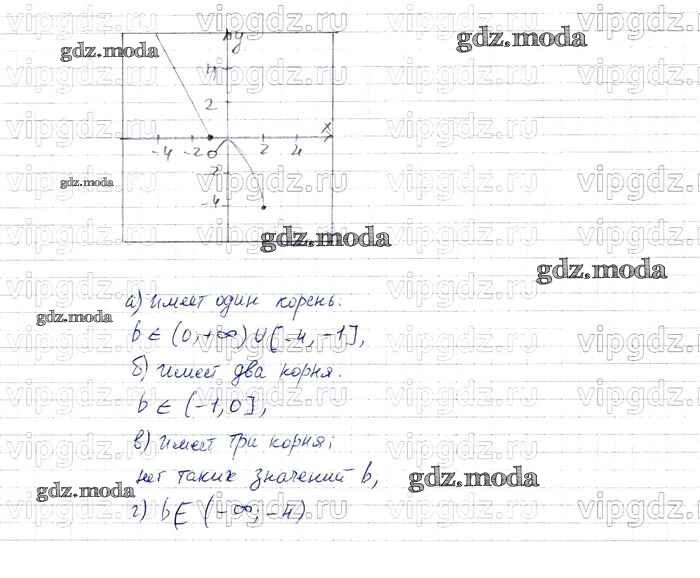 vipgdz.ru vipgdz.ru vipgdz.ru vipgdz.ru
gdz.moda gdz.moda
y
4
2
x
-4 -2 0 2 4
2
-4
gdz.moda
gdz.moda
gdz.moda
а) имеет один корень.
gdz.moda
b ∈ (0, +∞) ∪ [-4, -1],
б) имеет два корня.
b ∈ (-1, 0],
в) имеет три корня;
нет таких значений b,
gdz.moda
gdz.moda
г) b ∈ (-∞; -4)